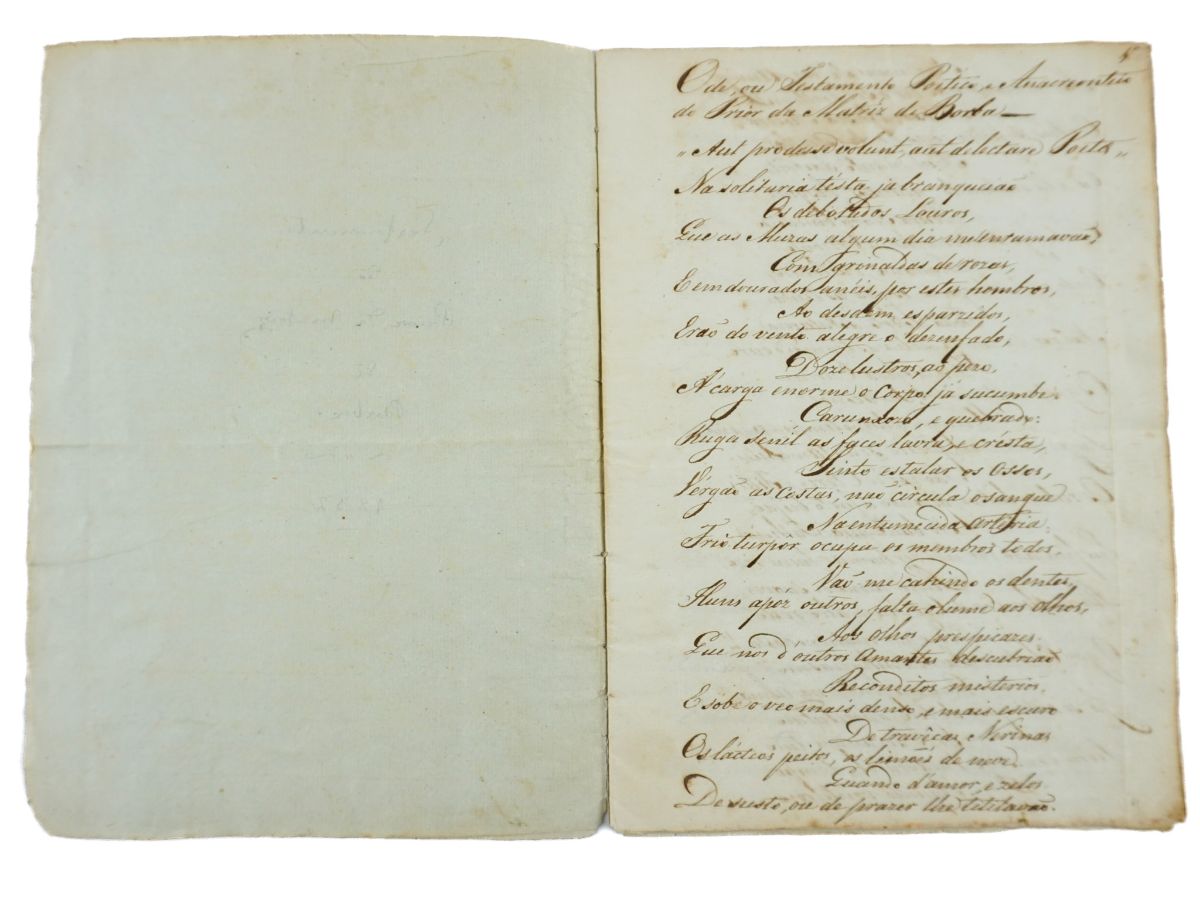 Ode, ou Testamento Poetico, e Anacreontico
do Prior da Matriz de Borba —
"Aut prodesse volunt, aut delectare Poetæ"
Na solitaria testa ja branqueião
Os debotados Louros,
Que as Muzas algum dia me enramavão,
Com grinaldas de rozas,
E em dourados anéis, por estes hombros,
Ao desdem esparzidos,
Erão do vento alegre o dezenfado,
Doze lustros, ao pezo,
Á carga enorme o Corpo já sucumbe
Carunxozo, e quebrado:
Ruga senil as faces lavra, e crésta,
Sinto estalar os Ossos,
Vérgão as Costas, não circula o sangue
Na entumecida Arteria.
Frio turpôr ocupa os membros todos.
Vão me cahindo os dentes,
Huns apóz outros, falta o lume aos olhos,
Aos olhos prespicazes
Que nos d'outros Amantes descubrião
Reconditos misterios,
E sobe o veo mais denso, e mais escuro
De travêças Nerinas
Os lácteos peitos, os limões de neve
Quando d'amor, e zelos
De susto, ou de prazer lhe titilavão.